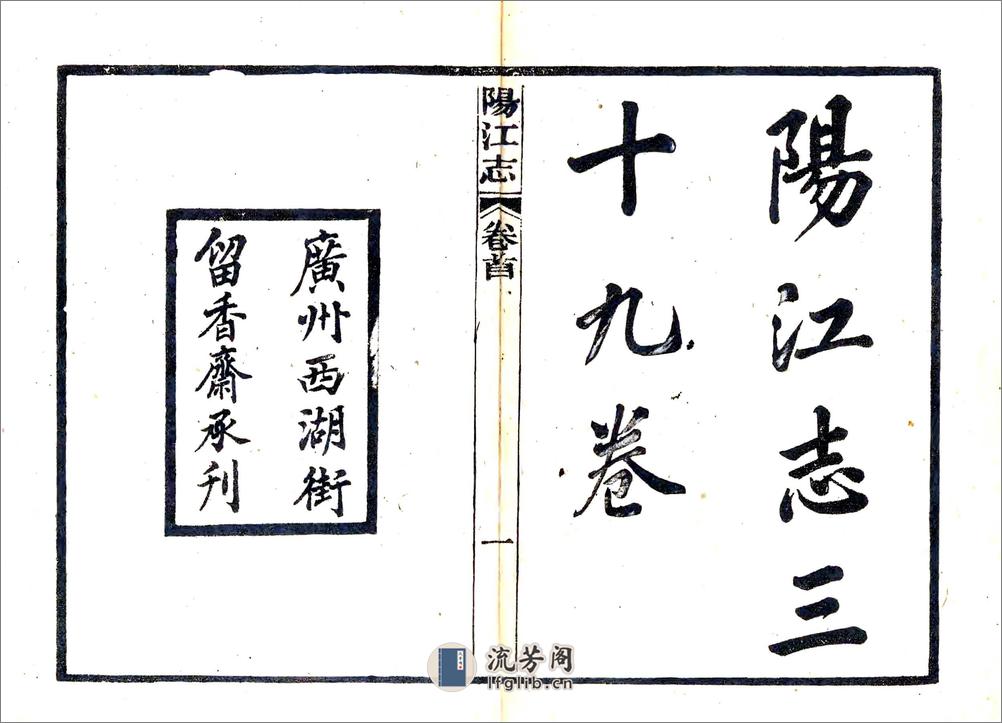 陽江志三
十九卷
陽江志
卷首
一
廣州西湖街
留香齋承刋
流芳阁
lfglib.cn